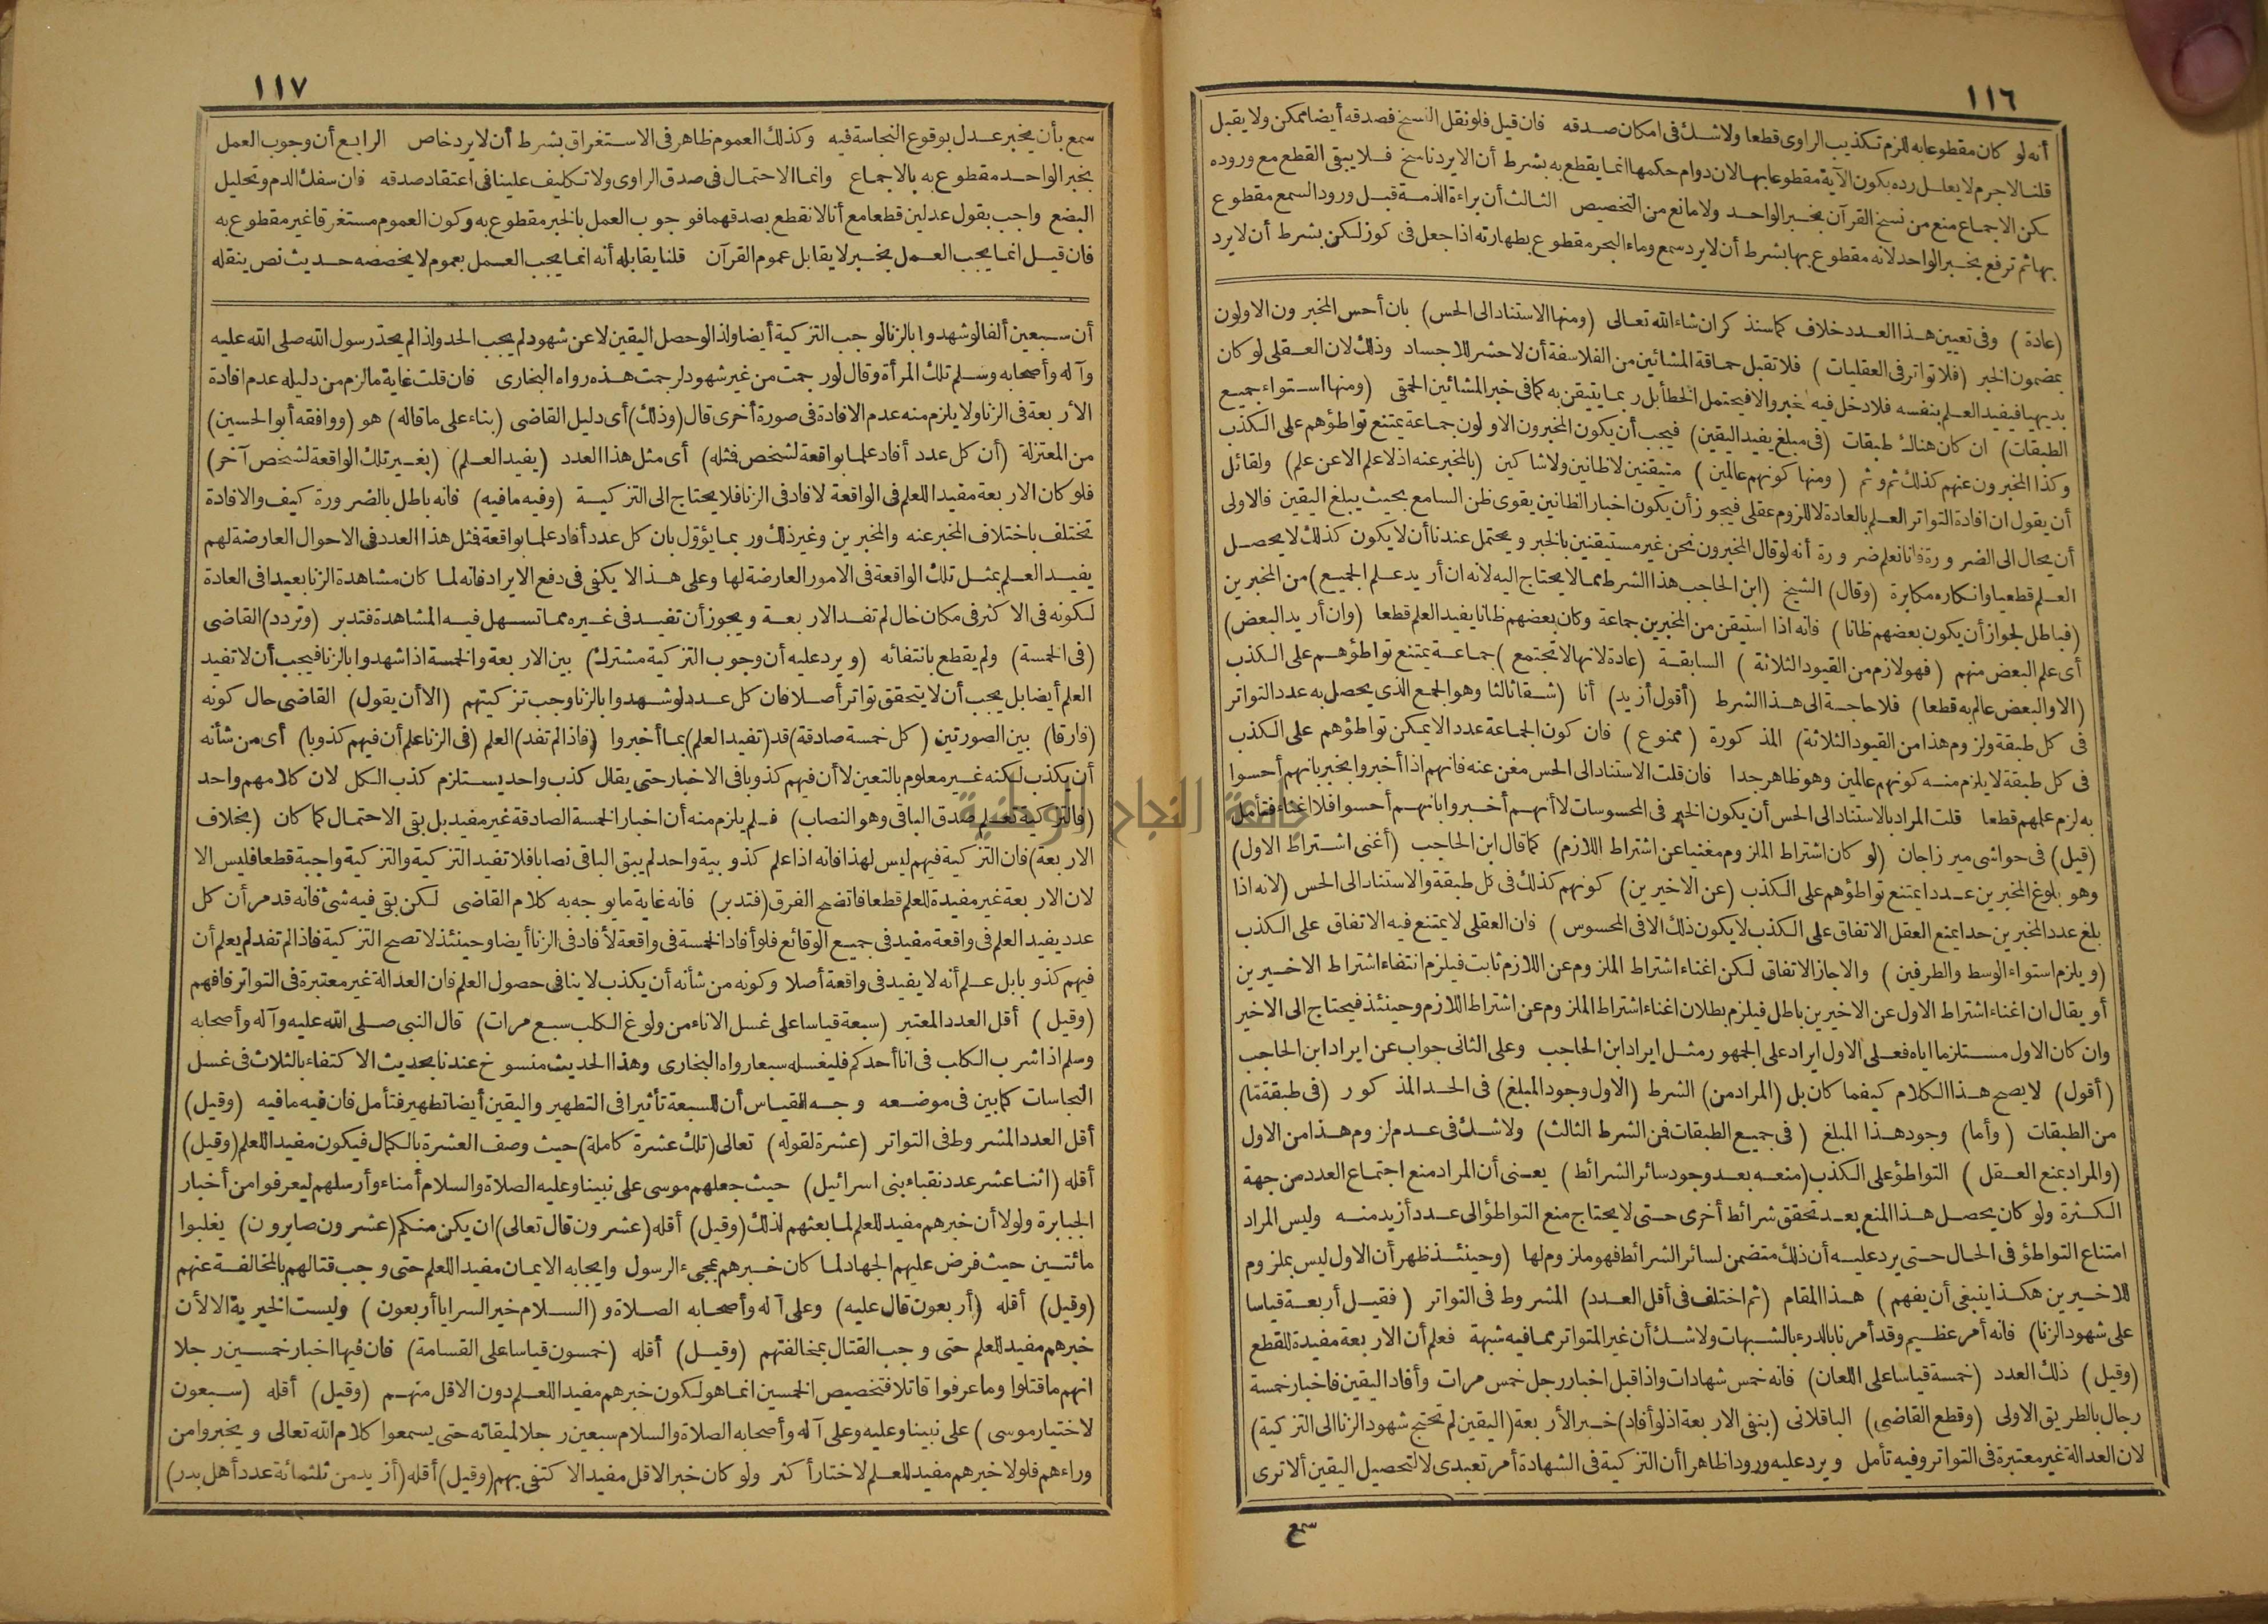 ١١٦
أنه لو كان مقطوعا به للزم تكذيب الراوى قطعا ولا شك فى امكان صدقه فان قيل فلو نقل النسخ فصدقه أيضا ممكن ولا يقبل
قلنا لا جرم لا يعلل رده بكون الآية مقطوعا بها لان دوام حكمها انما يقطع به بشرط أن لا يرد ناسخ فلا يبقى القطع مع وروده
لكن الاجماع منع من نسخ القرآن بخبر الواحد ولا مانع من التخصيص الثالث أن براءة الذمة قبل ورود السمع مقطوع
بها ثم ترفع بخبر الواحد لانه مقطوع بها بشرط أن لا يرد سمع وماء البحر مقطوع بطهارته اذا جعل فى كوز لكن بشرط أن لا يرد
(عادة) وفى تعيين هذا العدد خلاف كما سنذكر ان شاء الله تعالى (ومنها الاستناد الى الحس) بان أحس المخبرون الاولون
بمضمون الخبر (فلا تواتر فى العقليات) فلا تقبل حماقة المشائين من الفلاسفة أن لا حشر للاجساد وذلك لان العقلى لو كان
بديهيا فيفيد العلم بنفسه فلا دخل فيه لخبر والا فيحتمل الخطأ بل ربما يتيقن به كما فى خبر المشائين الحمقى (ومنها استواء جميع
الطبقات) ان كان هناك طبقات (فى مبلغ يفيد اليقين) فيجب أن يكون المخبرون الاولون جماعة يمتنع تواطؤهم على الكذب
وكذا المخبرون عنهم كذلك ثم وثم (ومنها كونهم عالمين) متيقنين لا ظانين ولا شاكين (بالمخبر عنه اذ لا علم الا عن علم) ولقائل
أن يقول ان افادة التواتر العلم بالعادة لا للزوم عقلى فيجوز أن يكون اخبار الظانين يقوى ظن السامع بحيث يبلغ اليقين فالاولى
أن يحال الى الضرورة فانا نعلم ضرورة أنه لو قال المخبرون نحن غير مستيقنين بالخبر ويحتمل عندنا أن لا يكون كذلك لا يحصل
العلم قطعيا وانكاره مكابرة (وقال) الشيخ (ابن الحاجب هذا الشرط مما لا يحتاج اليه لانه ان أريد علم الجميع) من المخبرين
(فباطل لجواز أن يكون بعضهم ظانا) فانه اذا استيقن من المخبرين جماعة وكان بعضهم ظانا يفيد العلم قطعا (وان أريد البعض)
أى علم البعض منهم (فهو لازم من القيود الثلاثة) السابقة (عادة لانها لا تجتمع) جماعة يمتنع تواطؤهم على الكذب
(الا والبعض عالم به قطعا) فلا حاجة الى هذا الشرط (أقول أزيد) أنا (شقا ثالثا وهو الجمع الذى يحصل به عدد التواتر
فى كل طبقة ولزوم هذا من القيود الثلاثة) المذكورة (ممنوع) فان كون الجماعة عددا لا يمكن تواطؤهم على الكذب
فى كل طبقة لا يلزم منه كونهم عالمين وهو ظاهر جدا فان قلت الاستناد الى الحس مغن عنه فانهم اذا أخبروا بخبر بانهم أحسوا
به لزم علمهم قطعا قلت المراد بالاستناد الى الحس أن يكون الخبر فى المحسوسات لا أنهم أخبروا بانهم أحسوا فلا اغناء فتأمل
(قيل) فى حواشى ميرزاجان (لو كان اشتراط الملزوم مغنيا عن اشتراط اللازم) كما قال ابن الحاجب (أغنى اشتراط الاول)
وهو بلوغ المخبرين عددا يمتنع تواطؤهم على الكذب (عن الاخيرين) كونهم كذلك فى كل طبقة والاستناد الى الحس (لانه اذا
بلغ عدد المخبرين حدا يمنع العقل الاتفاق على الكذب لا يكون ذلك الا فى المحسوس) فان العقلى لا يمتنع فيه الاتفاق على الكذب
(ويلزم استواء الوسط والطرفين) والا جاز الاتفاق لكن اغناء اشتراط الملزوم عن اللازم ثابت فيلزم انتفاء اشتراط الاخيرين
أو يقال ان اغناء اشتراط الاول عن الاخيرين باطل فيلزم بطلان اغناء اشتراط الملزوم عن اشتراط اللازم وحينئذ فيحتاج الى الاخير
وان كان الاول مستلزما اياه فعلى الاول ايراد على الجمهور مثل ايراد ابن الحاجب وعلى الثانى جواب عن ايراد ابن الحاجب
(أقول) لا يصح هذا الكلام كيفما كان بل (المراد من) الشرط (الاول وجود المبلغ) فى الحد المذكور (فى طبقة ما)
من الطبقات (وأما) وجود هذا المبلغ (فى جميع الطبقات فمن الشرط الثالث) ولا شك فى عدم لزوم هذا من الاول
(والمراد بمنع العقل) التواطؤ على الكذب (منعه بعد وجود سائر الشرائط) يعنى أن المراد منع اجتماع العدد من جهة
الكثرة ولو كان يحصل هذا المنع بعد تحقق شرائط أخرى حتى لا يحتاج منع التواطؤ الى عدد أزيد منه وليس المراد
امتناع التواطؤ فى الحال حتى يرد عليه أن ذلك متضمن لسائر الشرائط فهو ملزوم لها (وحينئذ ظهر أن الاول ليس بملزوم
للاخيرين هكذا ينبغى أن يفهم) هذا المقام (ثم اختلف فى أقل العدد) المشروط فى التواتر (فقيل أربعة قياسا
على شهود الزنا) فانه أمر عظيم وقد أمرنا بالدرء بالشبهات ولا شك أن غير المتواتر مما فيه شبهة فعلم أن الاربعة مفيدة للقطع
(وقيل) ذلك العدد (خمسة قياسا على اللعان) فانه خمس شهادات واذا قبل اخبار رجل خمس مرات وأفاد اليقين فاخبار خمسة
رجال بالطريق الاولى (وقطع القاضى) الباقلانى (بنفى الاربعة اذ لو أفاد) خبر الأربعة (اليقين لم تحتج شهود الزنا الى التزكية)
لان العدالة غير معتبرة فى التواتر وفيه تأمل ويرد عليه ورودا ظاهرا أن التزكية فى الشهادة أمر تعبدى لا لتحصيل اليقين ألا ترى
سمع
١١٧
سمع بأن يخبر عدل بوقوع النجاسة فيه وكذلك العموم ظاهر فى الاستغراق بشرط أن لا يرد خاص الرابع أن وجوب العمل
بخبر الواحد مقطوع به بالاجماع وانما الاحتمال فى صدق الراوى ولا تكليف علينا فى اعتقاد صدقه فان سفك الدم وتحليل
البضع واجب بقول عدلين قطعا مع أنا لا نقطع بصدقهما فوجوب العمل بالخبر مقطوع به وكون العموم مستغرقا غير مقطوع به
فان قيل انما يجب العمل بخبر لا يقابل عموم القرآن قلنا يقابله أنه انما يجب العمل بعموم لا يخصصه حديث نص ينقله
أن سبعين ألفا لو شهدوا بالزنا لوجب التزكية أيضا ولذا لو حصل اليقين لا عن شهود لم يجب الحد ولذا لم يحد رسول الله صلى الله عليه
وآله وأصحابه وسلم تلك المرأة وقال لو رجمت من غير شهود لرجمت هذه رواه البخارى فان قلت غاية ما لزم من دليله عدم افادة
الأربعة فى الزنا ولا يلزم منه عدم الافادة فى صورة أخرى قال (وذلك) أى دليل القاضى (بناء على ما قاله) هو (ووافقه أبو الحسين)
من المعتزلة (أن كل عدد أفاد علما بواقعة لشخص فمثله) أى مثل هذا العدد (يفيد العلم) (بغير تلك الواقعة لشخص آخر)
فلو كان الاربعة مفيدا للعلم فى الواقعة لافاد فى الزنا فلا يحتاج الى التزكية (وفيه ما فيه) فانه باطل بالضرورة كيف والافادة
تختلف باختلاف المخبر عنه والمخبرين وغير ذلك وربما يؤول بان كل عدد أفاد علما بواقعة فمثل هذا العدد فى الاحوال العارضة لهم
يفيد العلم بمثل تلك الواقعة فى الامور العارضة لها وعلى هذا لا يكفى فى دفع الايراد فانه لما كان مشاهدة الزنا بعيدا فى العادة
لكونه فى الاكثر فى مكان خال لم تفد الاربعة ويجوز أن تفيد فى غيره مما تسهل فيه المشاهدة فتدبر (وتردد) القاضى
(فى الخمسة) ولم يقطع بانتفائه (ويرد عليه أن وجوب التزكية مشترك) بين الاربعة والخمسة اذا شهدوا بالزنا فيجب أن لا تفيد
العلم أيضا بل يجب أن لا يتحقق تواتر أصلا فان كل عدد لو شهدوا بالزنا وجب تزكيتهم (الا أن يقول) القاضى حال كونه
(فارقا) بين الصورتين (كل خمسة صادقة) قد (تفيد العلم) بما أخبروا (فاذا لم تفد) العلم (فى الزنا علم أن فيهم كذوبا) أى من شأنه
أن يكذب لكنه غير معلوم بالتعين لا أن فيهم كذوبا فى الاخبار حتى يقال كذب واحد يستلزم كذب الكل لان كلامهم واحد
(فالتزكية تعلم صدق الباقى وهو النصاب) فلم يلزم منه أن اخبار الخمسة الصادقة غير مفيد بل بقى الاحتمال كما كان (بخلاف
الاربعة) فان التزكية فيهم ليس لهذا فانه اذا علم كذوبية واحد لم يبق الباقى نصابا فلا تفيد التزكية والتزكية واجبة قطعا فليس الا
لان الاربعة غير مفيدة للعلم قطعا فاتضح الفرق (فتدبر) فانه غاية ما يوجه به كلام القاضى لكن بقى فيه شئ فانه قد مر أن كل
عدد يفيد العلم فى واقعة مفيد فى جميع الوقائع فلو أفاد الخمسة فى واقعة لأفاد فى الزنا أيضا وحينئذ لا تصح التزكية فاذا لم تفد لم يعلم أن
فيهم كذوبا بل علم أنه لا يفيد فى واقعة أصلا وكونه من شأنه أن يكذب لا ينافى حصول العلم فان العدالة غير معتبرة فى التواتر فافهم
(وقيل) أقل العدد المعتبر (سبعة قياسا على غسل الاناء من ولوغ الكلب سبع مرات) قال النبى صلى الله عليه وآله وأصحابه
وسلم اذا شرب الكلب فى انا أحدكم فليغسله سبعا رواه البخارى وهذا الحديث منسوخ عندنا بحديث الاكتفاء بالثلاث فى غسل
النجاسات كما بين فى موضعه وجه القياس أن للسبعة تأثيرا فى التطهير واليقين أيضا تطهير فتأمل فان فيه ما فيه (وقيل)
أقل العدد المشروط فى التواتر (عشرة لقوله) تعالى (تلك عشرة كاملة) حيث وصف العشرة بالكمال فيكون مفيدا للعلم (وقيل)
أقله (اثنا عشر عدد نقباء بنى اسرائيل) حيث جعلهم موسى على نبينا وعليه الصلاة والسلام أمناء وأرسلهم ليعرفوا من أخبار
الجبابرة ولولا أن خبرهم مفيد للعلم لما بعثهم لذلك (وقيل) أقله (عشرون قال تعالى) ان يكن منكم (عشرون صابرون) يغلبوا
مائتين حيث فرض عليهم الجهاد لما كان خبرهم بمجىء الرسول وايجابه الايمان مفيدا للعلم حتى وجب قتالهم بالمخالفة عنهم
(وقيل) أقله (أربعون قال عليه) وعلى آله وأصحابه الصلاة و(السلام خير السرايا أربعون) وليست الخيرية الا لأن
خبرهم مفيد للعلم حتى وجب القتال بمخالفتهم (وقيل) أقله (خمسون قياسا على القسامة) فان فيها اخبار خمسين رجلا
انهم ما قتلوا وما عرفوا قاتلا فتخصيص الخمسين انما هو لكون خبرهم مفيدا للعلم دون الاقل منهم (وقيل) أقله (سبعون
لاختيار موسى) على نبينا وعليه وعلى آله وأصحابه الصلاة والسلام سبعين رجلا لميقاته حتى يسمعوا كلام الله تعالى ويخبروا من
وراءهم فلولا خبرهم مفيد للعلم لاختار أكثر ولو كان خبر الاقل مفيدا لاكتفى بهم (وقيل) أقله (أزيد من ثلثمائة عدد أهل بدر)
جامعة النجاح الوطنية